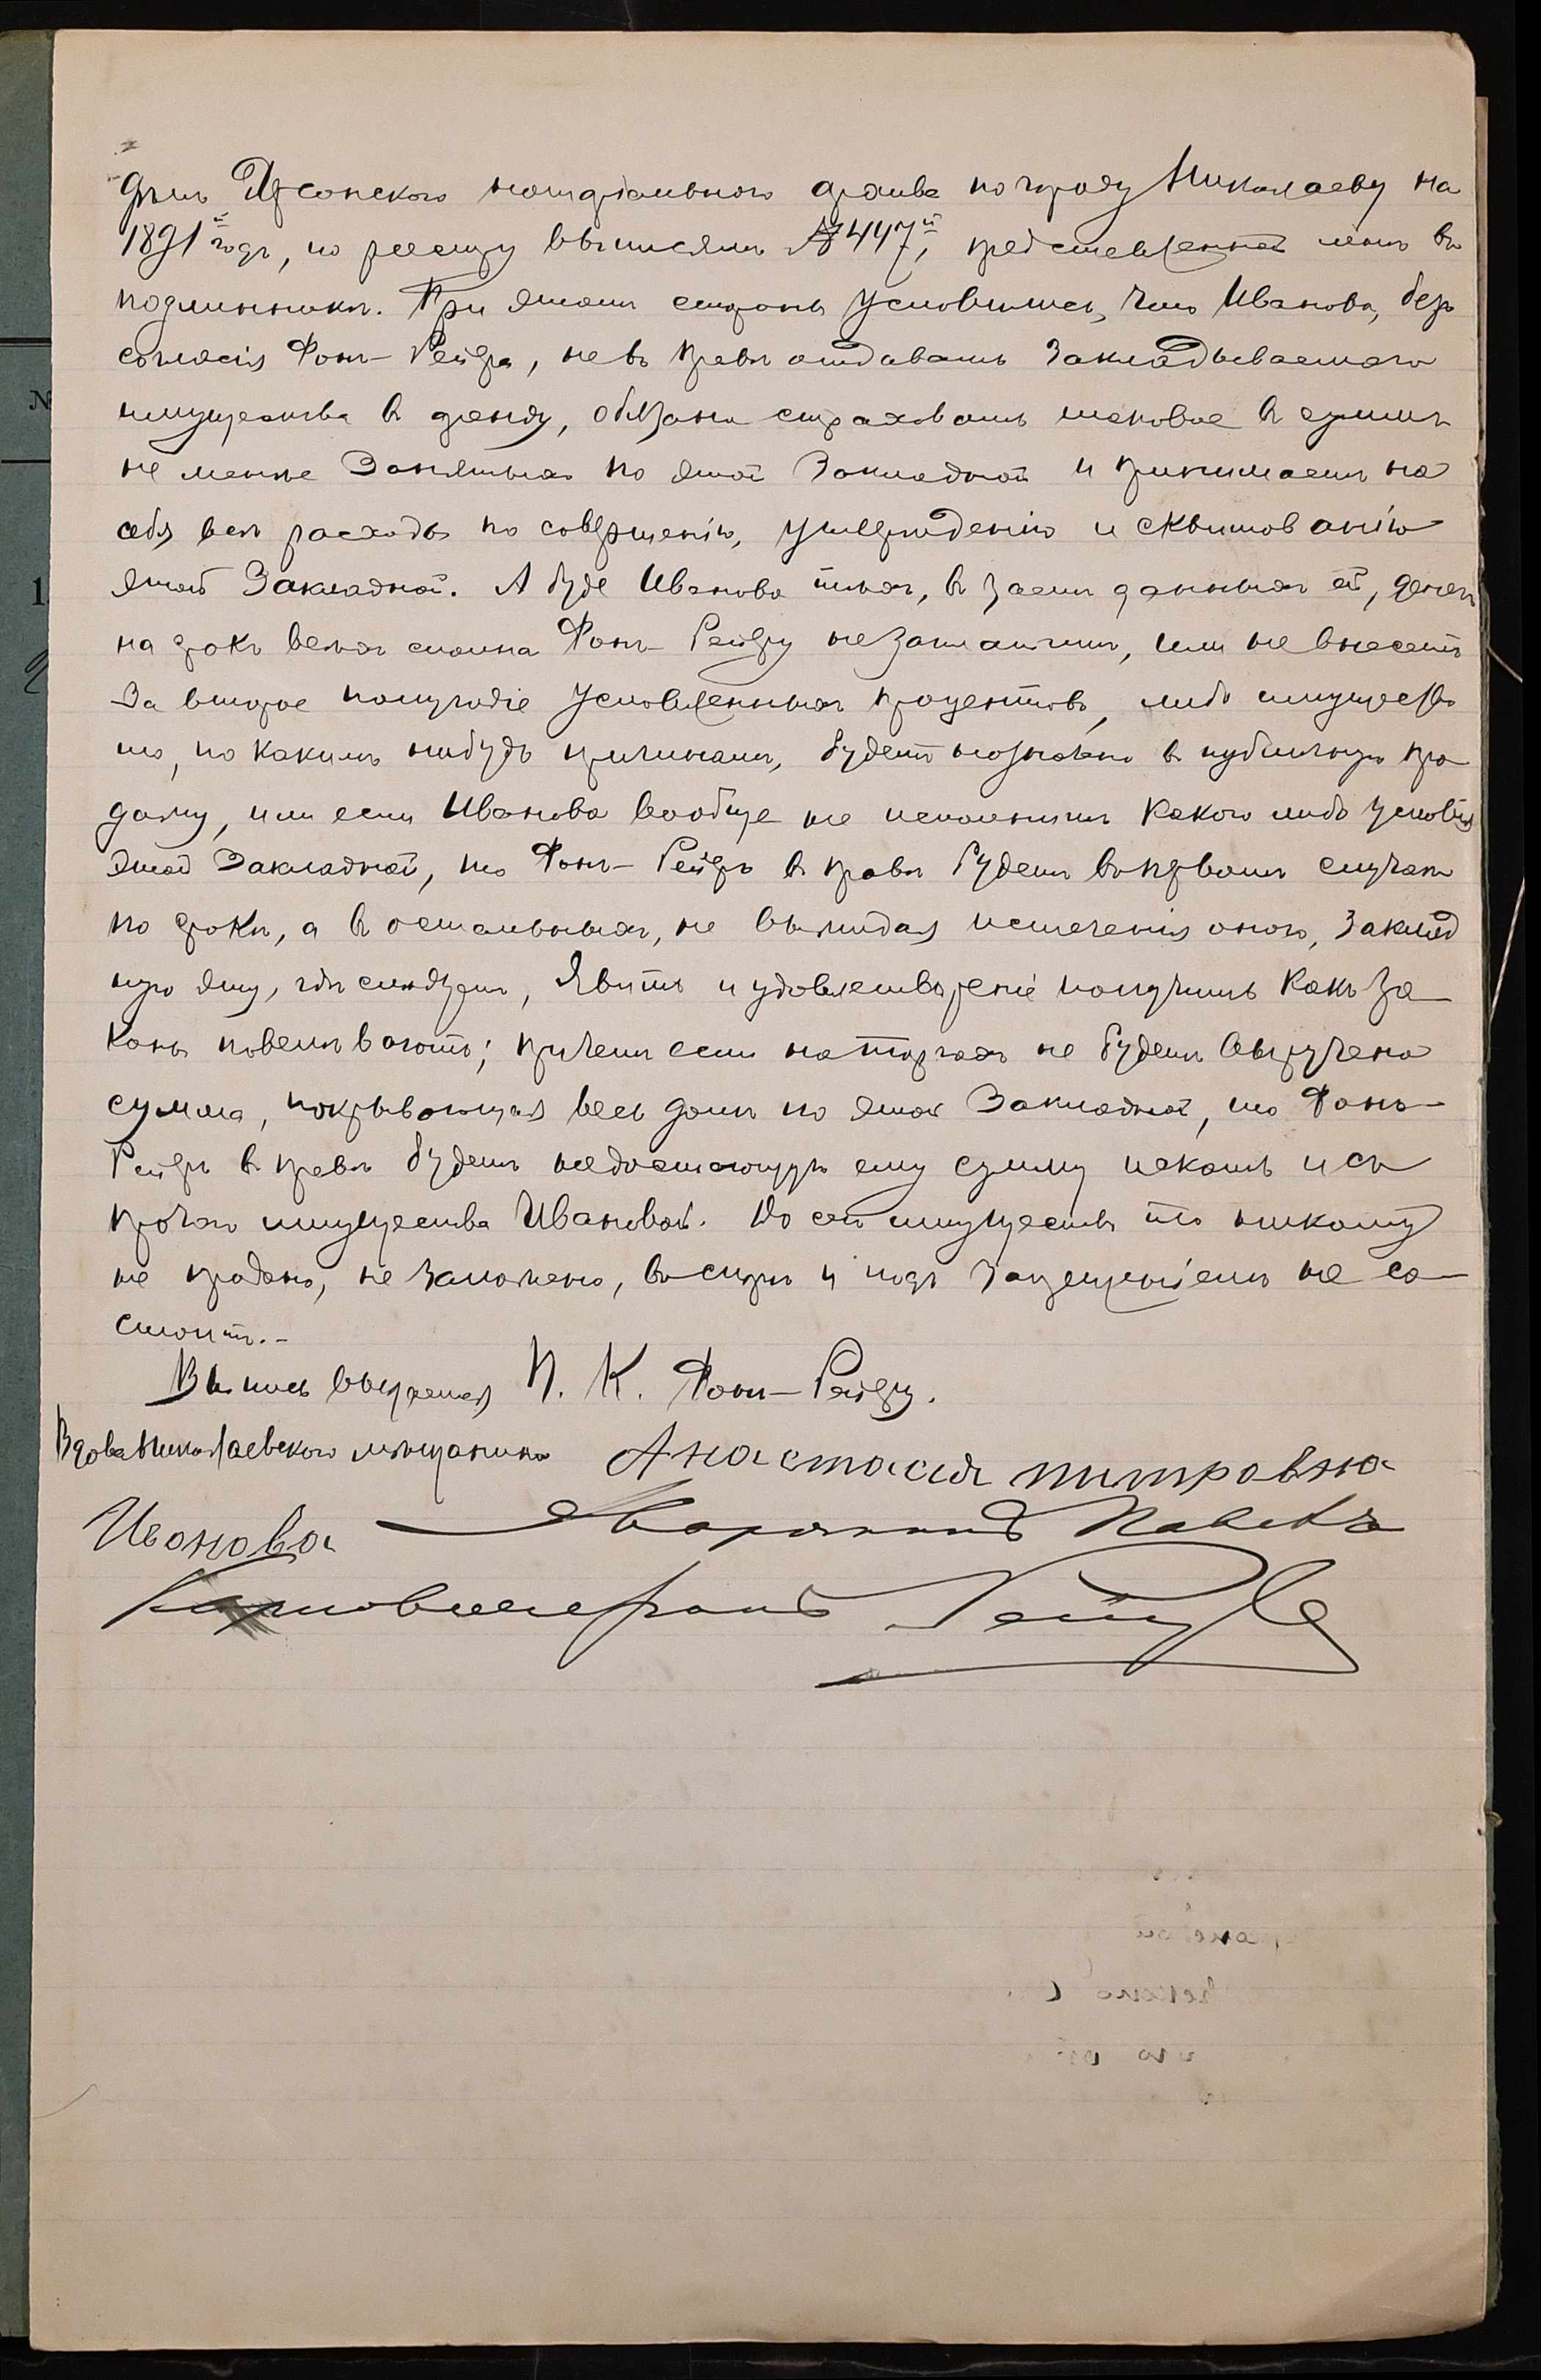 дѣлъ Херсонскаго нотаріальнаго архива по городу Николаеву на
1891й годъ, по реестру выписямъ № 447й, представленной мнѣ въ
подлинникѣ. При этомъ стороны условились, что Иванова, безъ
согласія Фонъ-Рейера, не въ правѣ отдавать закладываемаго
имущества въ аренду, обязана страховать таковое въ суммѣ
не менѣе занятыхъ по этой закладной и принимаетъ на
себя всѣ расходы по совершенію, утвержденію и сквитованію
этой Закладной. А буде Иванова тѣхъ, въ заемъ данныхъ ей, денегъ
на срокъ всѣхъ сполна Фонъ-Рейеру не заплатитъ, или не внесетъ
за второе полугодіе условленныхъ процентовъ, либо имущество
то, по какимъ нибудь причинамъ, будетъ назначено въ публичную про-
дажу, или если Иванова вообще не исполнитъ какого либо условія
этой Закладной, то Фонъ-Рейеръ въ правѣ будетъ въ первомъ случаѣ
по срокѣ, а въ остальныхъ, не выжидая истеченія онаго, заклад
ную эту, гдѣ слѣдуетъ, явить и удовлетвореніе получить какъ за-
коны повелѣваютъ; причемъ если на торгахъ не будетъ выручена
сумма, покрывающая весь долгъ по этой Закладной, то Фонъ-
Рейеръ въ правѣ будетъ недостающую ему сумму искать и съ
прочаго имущества Ивановой. До сей имущество то никому
не продано, не заложено, въ спорѣ и подъ запрещеніемъ не со-
стоитъ.-
Выпись выдается П. К. Фонъ-Рейеру.
Вдова Николаевского мѣщанина Анастасия питровна
Иванова Дворянинъ Павелъ
Карловичъ фонъ Рейеръ